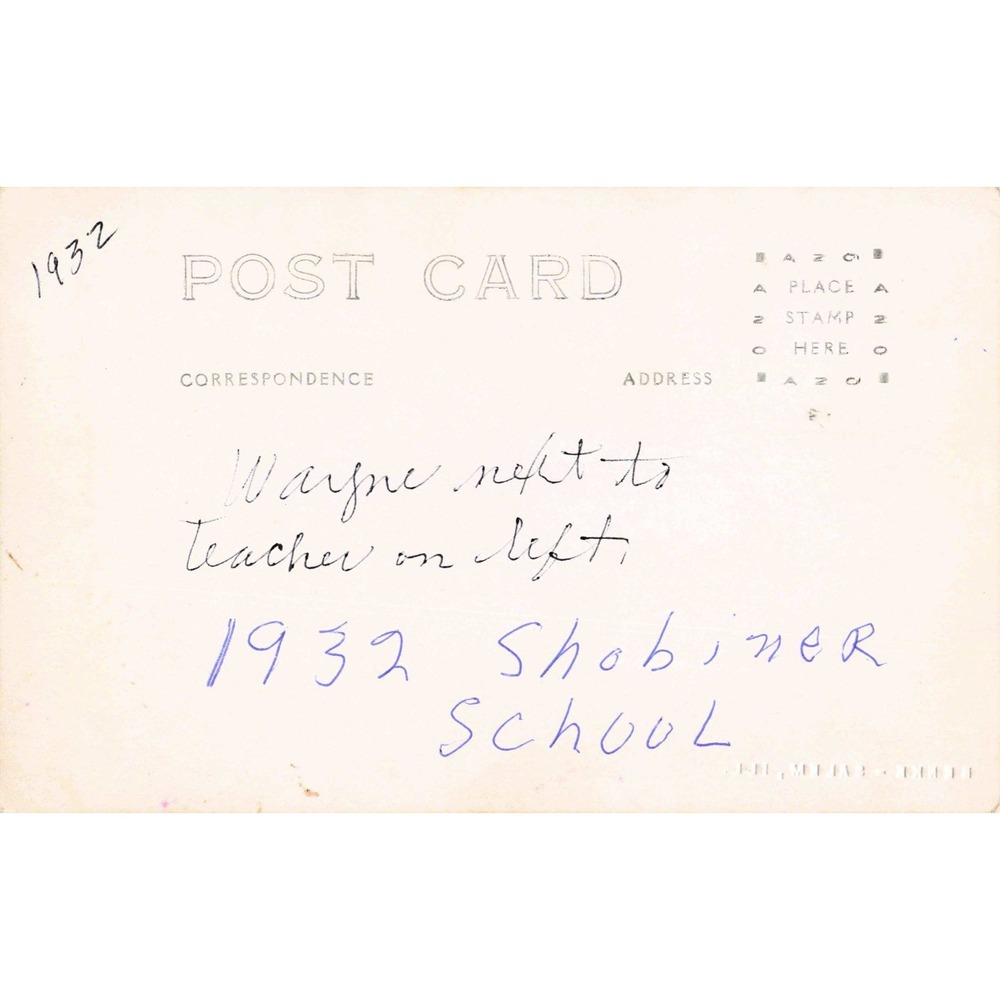 1932
POST CARD
AZO
A PLACE A
Z STAMP Z
O HERE O
AZO
CORRESPONDENCE
ADDRESS
Wayne next to
teacher on left.
1932 Shobiner
School
SALEM, ILL.